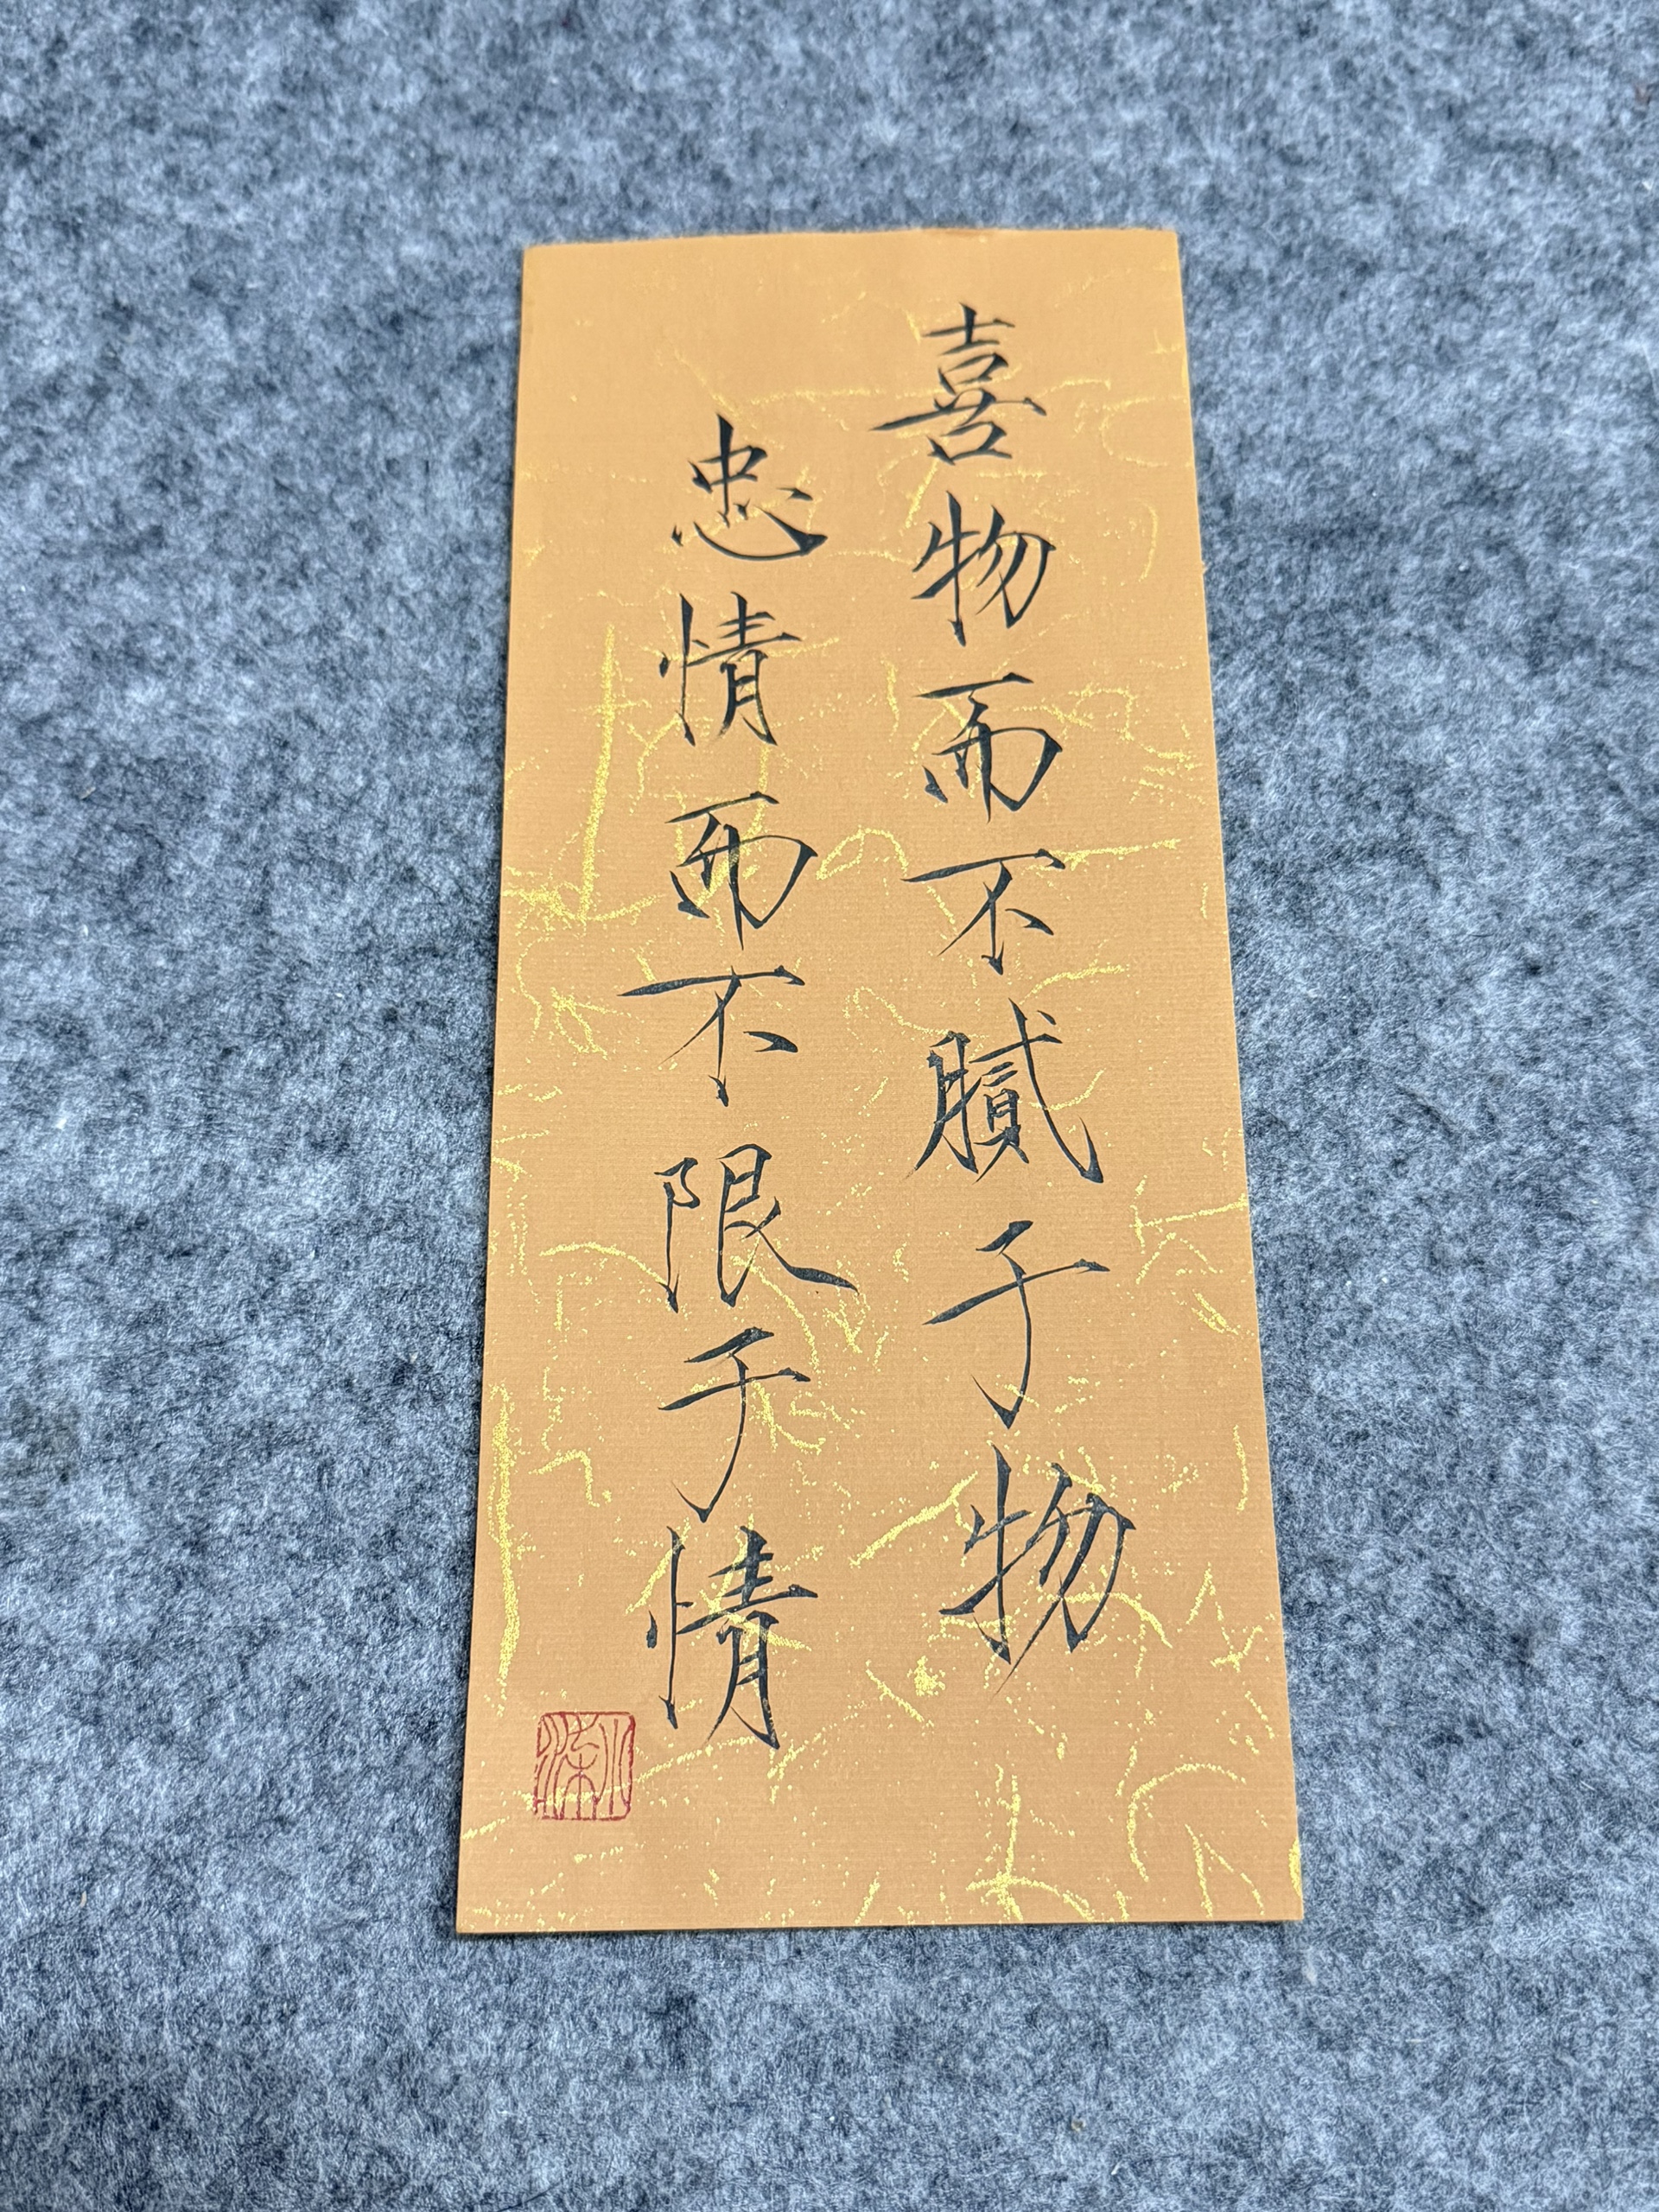 喜物而不膩于物
忠情而不限于情